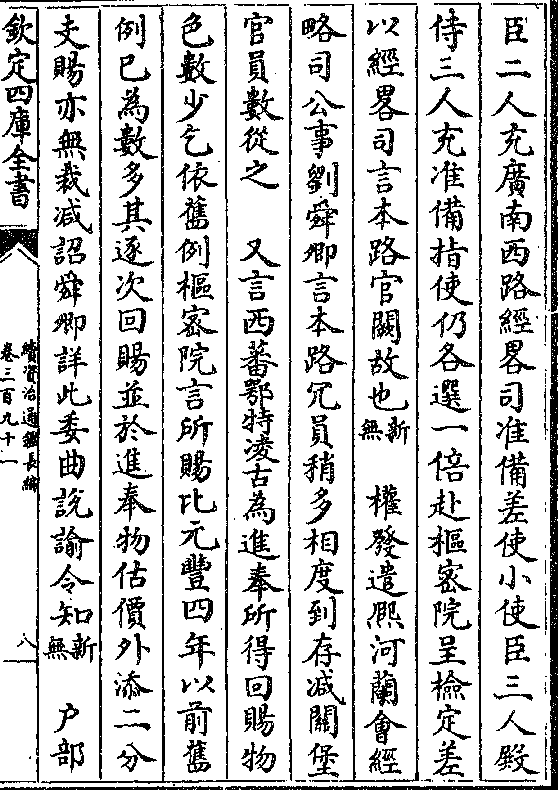 臣二人充廣南西路經畧司准備差使小使臣三人殿
侍三人充准備指使仍各選一倍赴樞密院呈檢定差
以經畧司言本路官闕故也新無　權發遣熙河蘭會經
略司公事劉舜卿言本路冗員稍多相度到存減關堡
官員數從之　又言西蕃鄂特凌古為進奉所得回賜物
色數少乞依舊例樞密院言所賜比元豐四年以前舊
例已為數多其逐次回賜並於進奉物估價外添二分
支賜亦無裁減詔舜卿詳此委曲說諭令知新無　户部
欽定四庫全書
續資治通鑑長編
卷三百九十一
八